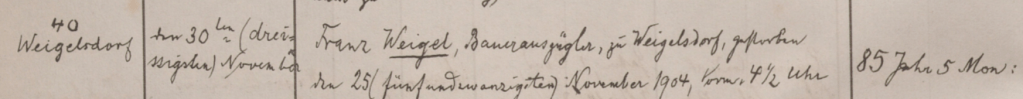 40
Weigelsdorf
den 30ten (drei-
ssigsten) November
Franz Weigel, Bauerauszügler, zu Weigelsdorf, gestorben
den 25 (fünfundzwanzigsten) November 1904, Vorm. 4 1/2 Uhr
85 Jahr 5 Mon: